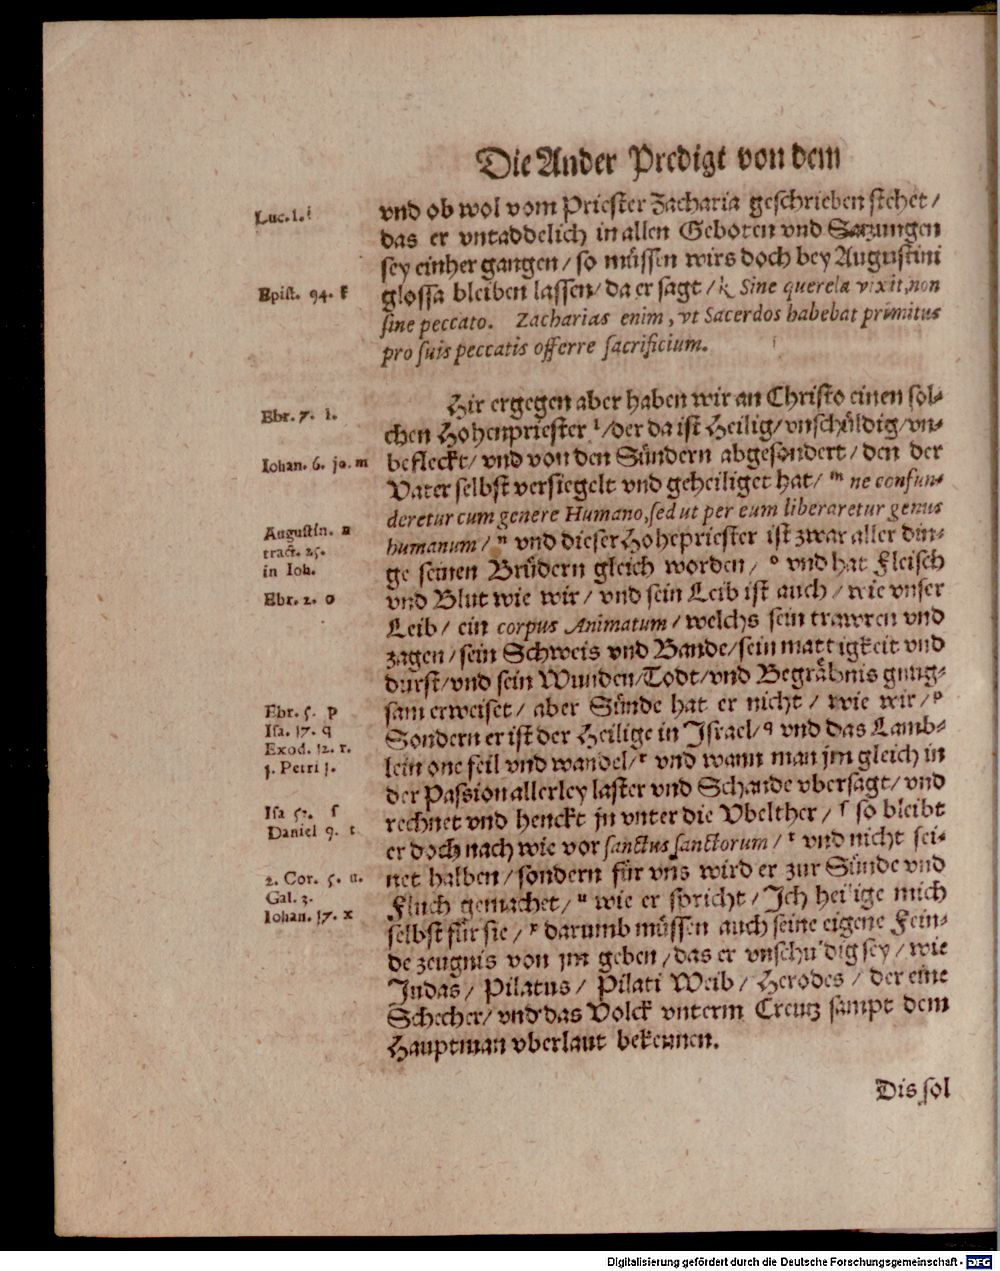 Die Ander Predigt von dem
Luc. 1. i
vnd ob wol vom Priester Zacharia geschrieben stehet /
das er vntaddelich in allen Geboten vnd Satzungen
sey einher gangen / so müssen wirs doch bey Augustini
Epist. 94. k
glossa bleiben lassen / da er sagt / k Sine querela vixit, non
sine peccato. Zacharias enim, vt Sacerdos habebat primitus
pro suis peccatis offerre sacrificium.
Hir ergegen aber haben wir an Christo einen sol-
Ebr. 7. l.
chen Hohenpriester l / der da ist Heilig / vnschüldig / vn-
Iohan. 6. 10. m
befleckt / vnd von den Sündern abgesondert / den der
Vater selbst versiegelt vnd geheiliget hat / m ne confun-
deretur cum genere Humano, sed ut per eum liberaretur genus
Augustin. n
tract. 25.
in Ioh.
humanum / n vnd dieser Hohepriester ist zwar aller din-
ge seinen Brüdern gleich worden / o vnd hat Fleisch
Ebr. 2. o
vnd Blut wie wir / vnd sein Leib ist auch / wie vnser
Leib / ein corpus Animatum / welchs sein trawren vnd
zagen / sein Schweis vnd Bande / sein mattigkeit vnd
durst / vnd sein Wunden / Todt / vnd Begräbnis gnug-
Ebr. 5. p
sam erweiset / aber Sünde hat er nicht / wie wir / p
Isa. 17. q
Sondern er ist der Heilige in Israel / q vnd das Lamb-
Exod. 12. r.
1. Petri 1.
lein one feil vnd wandel / r vnd wann man jm gleich in
der Passion allerley laster vnd Schande vbersagt / vnd
Isa 53. s
rechnet vnd henckt jn vnter die Vbelther / s so bleibt
Daniel 9. t
er doch nach wie vor sanctus sanctorum / t vnd nicht sei-
2. Cor. 5. u.
net halben / sondern für vns wird er zur Sünde vnd
Gal. 3.
Fluch gemachet / u wie er spricht / Ich heilige mich
Iohan. 17. x
selbst für sie / x darumb müssen auch seine eigene Fein-
de zeugnis von jm geben / das er vnschuldig sey / wie
Judas / Pilatus / Pilati Weib / Herodes / der eine
Schecher / vnd das Volck vnterm Creutz sampt dem
Hauptman vberlaut bekennen.
Dis sol
Digitalisierung gefördert durch die Deutsche Forschungsgemeinschaft - DFG